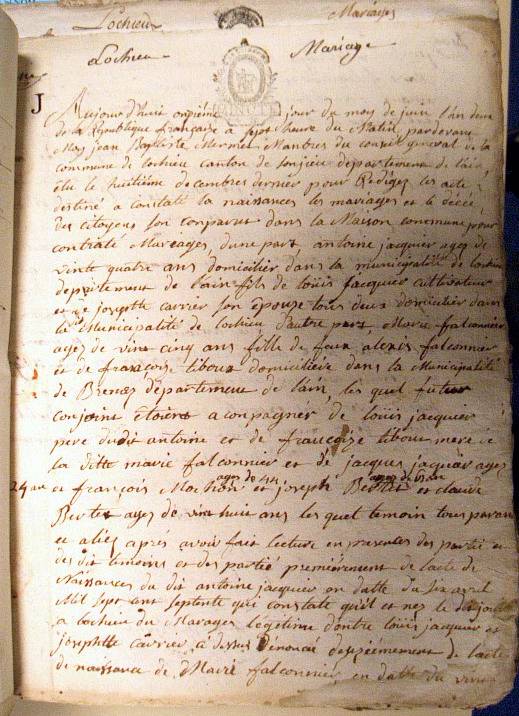 Lochieu Mariages
Lochieu Mariage
J
Aujourd'huit onzième jour du moy de juin l'an deux
de la République française à sept heure du Matin pardevant
Moy jean Baptiste Mermier Manbres du conseil general de la
commune de Lochieu canton de Sonjieu departement de l'ain,
élu le huitième decembres dernier pour Rediger les acte
destiné a constaté la naissances les mariages et le décée,
des citoyens son conparut dans la Maison commune pour
contraté Mareages, dune part, antoine jacquier ages de
vinte quatre ans domicilier dans la municipalité de Lochieu
departement de l'ain fils de Loüis jacquier cultivateur
et de josephte carrier son épouze tous deux domicilier dans
la Municipalité de Lochieu d'autre part, Marie falconnier
ages de vint cinq ans fille de feux alexis falconnier
et de françoise liboux domiciliere dans la Municipalité
de Brenas departement de l'ain, les quel futur
conjoint étoient acompagner de Loüis jacquier
pere dudit antoine et de françoize liboux mere de
la ditte marie falconnier et de jacques jaquier ages
ages de 44 ages de
24 ans et françois Mochon et joseph Berthet et claude
Berthet ages de vint huit ans les quel temoin tous parans
et aliez apres avoir fait lecture en presences des partie et
des dit temoins et des partié premièrement de l'acte de
Naissances du dit antoine jacquier en datte du six avril
Mil sept cent septente qui constate qu'il et nez le dit jour
a Lochieu du Marages légétime d'entre Loüis jacquier et
josephte carrier ci dessus dénomé deuzièmement de l'acte
de naissance de Marie falconnier, en datte du